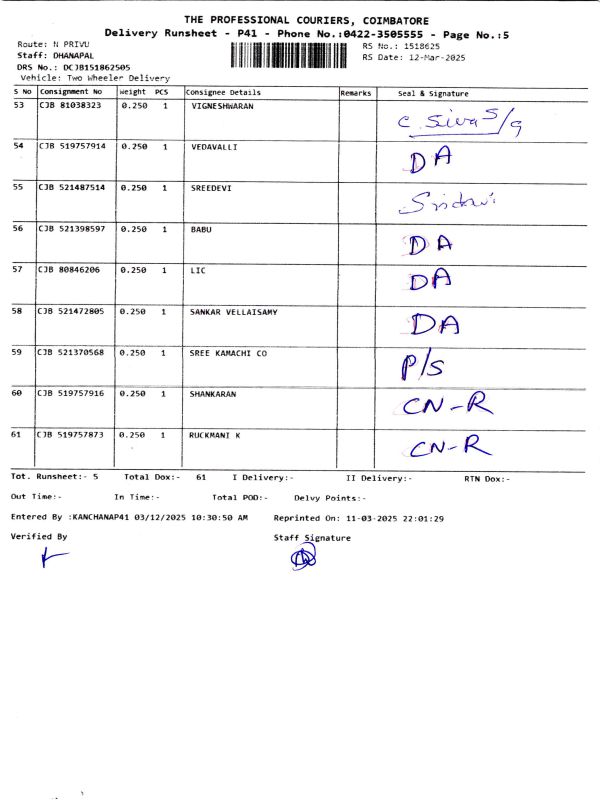 THE PROFESSIONAL COURIERS, COIMBATORE
Delivery Runsheet - P41 - Phone No.:0422-3505555 - Page No.:5
Route: N PRIVU
RS No.: 1518625
Staff: DHANAPAL
RS Date: 12-Mar-2025
DRS No.: DCJB151862505
Vehicle: Two Wheeler Delivery
S No Consignment No Weight PCS Consignee Details Remarks Seal & Signature
53 CJB 81038323 0.250 1 VIGNESHWARAN C. Siva S/g
54 CJB 519757914 0.250 1 VEDAVALLI DA
55 CJB 521487514 0.250 1 SREEDEVI
56 CJB 521398597 0.250 1 BABU DA
57 CJB 80846206 0.250 1 LIC DA
58 CJB 521472805 0.250 1 SANKAR VELLAISAMY DA
59 CJB 521370568 0.250 1 SREE KAMACHI CO P/S
60 CJB 519757916 0.250 1 SHANKARAN CN-R
61 CJB 519757873 0.250 1 RUCKMANI K CN-R
Tot. Runsheet:- 5 Total Dox:- 61 I Delivery:- II Delivery:- RTN Dox:-
Out Time:- In Time:- Total POD:- Delvy Points:-
Entered By :KANCHANAP41 03/12/2025 10:30:50 AM Reprinted On: 11-03-2025 22:01:29
Verified By Staff Signature